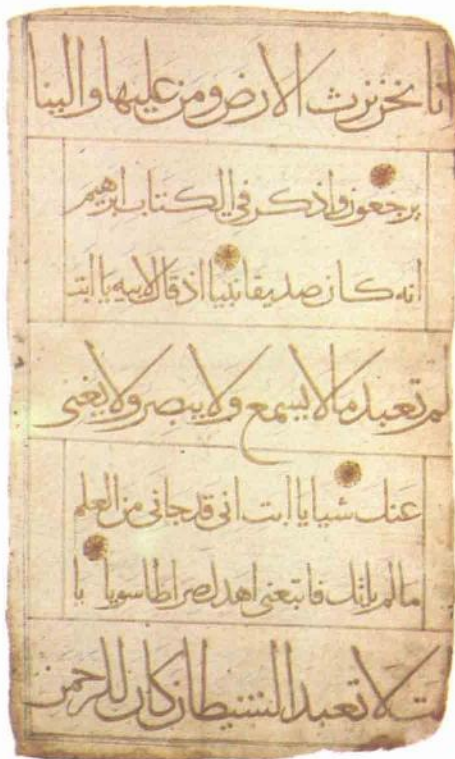 انا نحن نرث الارض ومن عليها والينا
يرجعون واذكر في الكتاب ابرهيم
انه كان صديقا نبيا اذ قال لابيه يا ابت
لم تعبد ما لا يسمع ولا يبصر ولا يغنى
عنك شيا يا ابت انى قد جانى من العلم
ما لم ياتك فاتبعنى اهدك صراطا سويا يا
بت لا تعبد الشيطان كان للرحمن